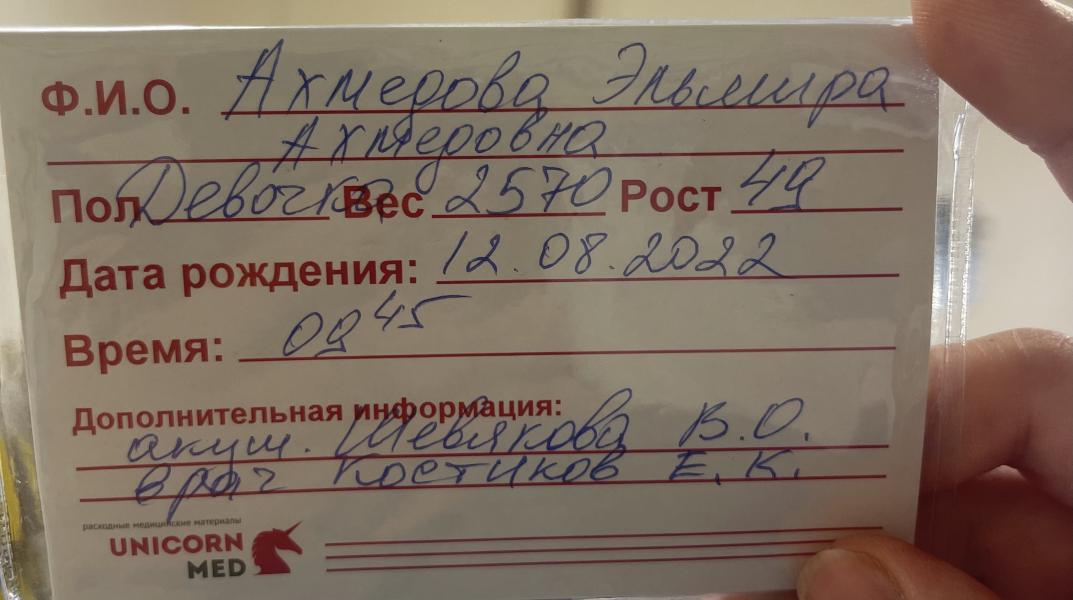 Ф.И.О. Ахмедова Эльмира
Ахмедовна
Пол Девочка Вес 2570 Рост 49
Дата рождения: 12.08.2022
Время: 09 45
Дополнительная информация:
акуш. Шевякова В.О.
врач Костиков Е.К.
расходные медицинские материалы
UNICORN
MED